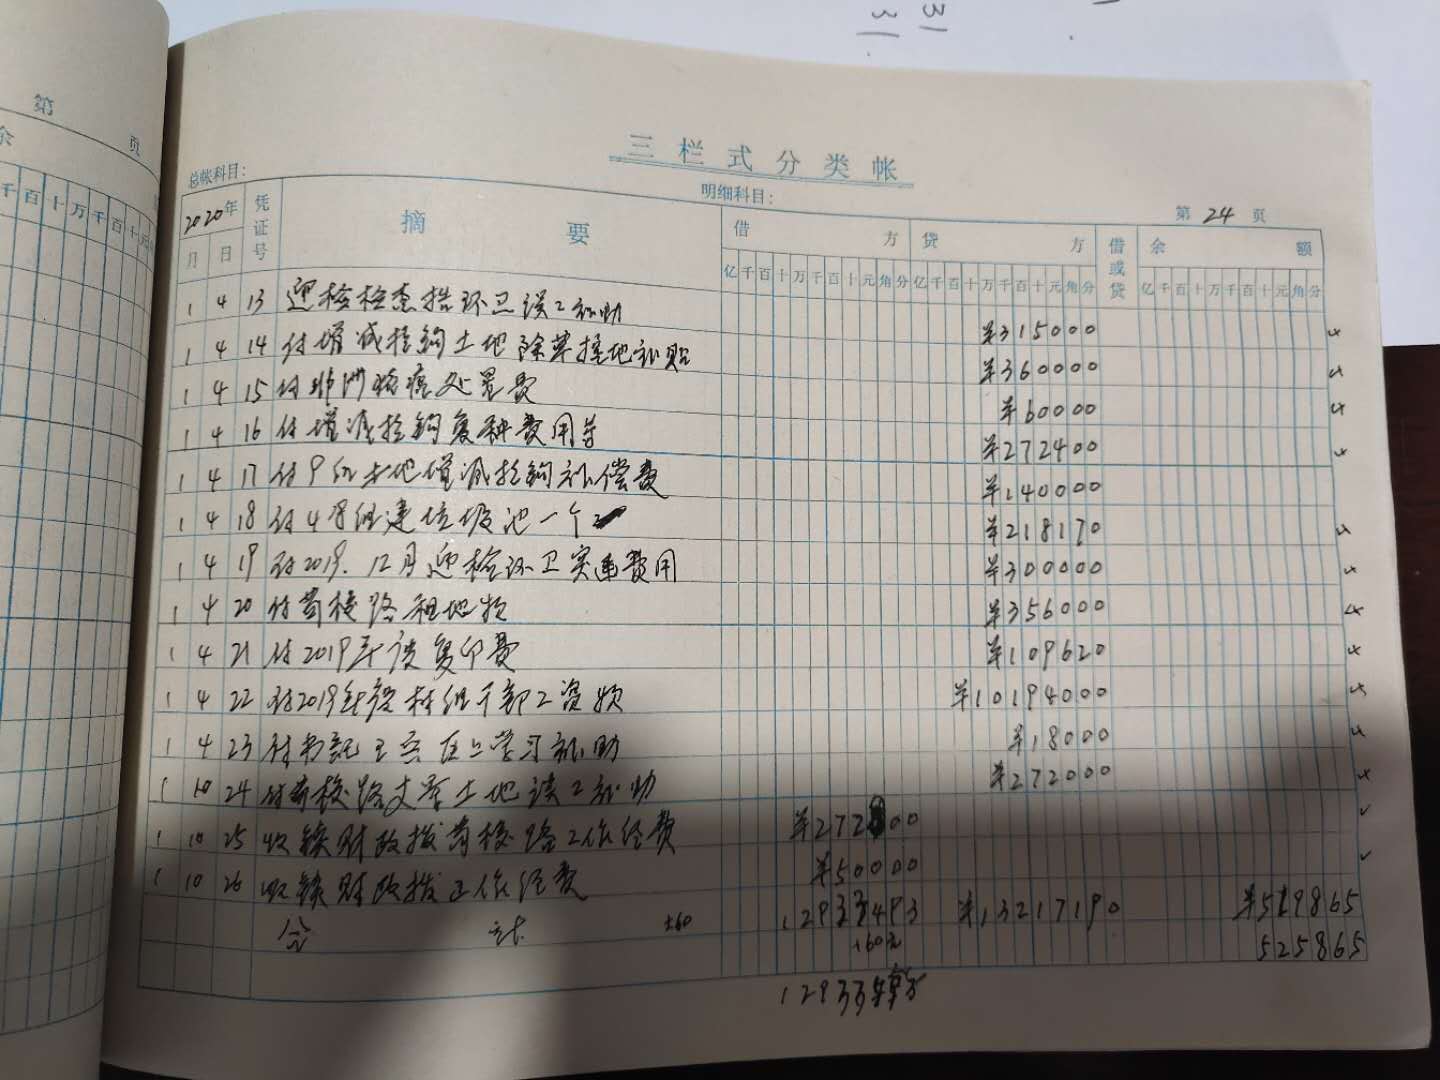 31
31.
第 页
余
千百十万千百十元
三栏式分类帐
总帐科目: 明细科目:
第 24 页
2020年 凭证号 摘要 借方 贷方 借或贷 余额
月 日 亿千百十万千百十元角分 亿千百十万千百十元角分 亿千百十万千百十元角分
1 4 13 迎检检查措环卫误工补助 ¥315000
1 4 14 付增减挂钩土地除草挖地补贴 ¥360000
1 4 15 付非洲猪瘟处置费 ¥60000
1 4 16 付增减挂钩复种费用等 ¥272400
1 4 17 付9组土地增减挂钩补偿费 ¥140000
1 4 18 付4房组建垃圾池一个 ¥218170
1 4 19 付2019.12月迎检环卫突击费用 ¥300000
1 4 20 付 路租地款 ¥356000
1 4 21 付2019年 复印费 ¥109620
1 4 22 付2019年度村组干部工资款 ¥10194000
1 4 23 付书记 学习补助 ¥18000
1 10 24 付 路 土地误工补助 ¥272000
1 10 25 收镇财政拨 路工作经费 ¥272 00
1 10 26 收镇财政拨工作经费 ¥50000
合计 ±60 ¥13217190 ¥519865
+60元 525865